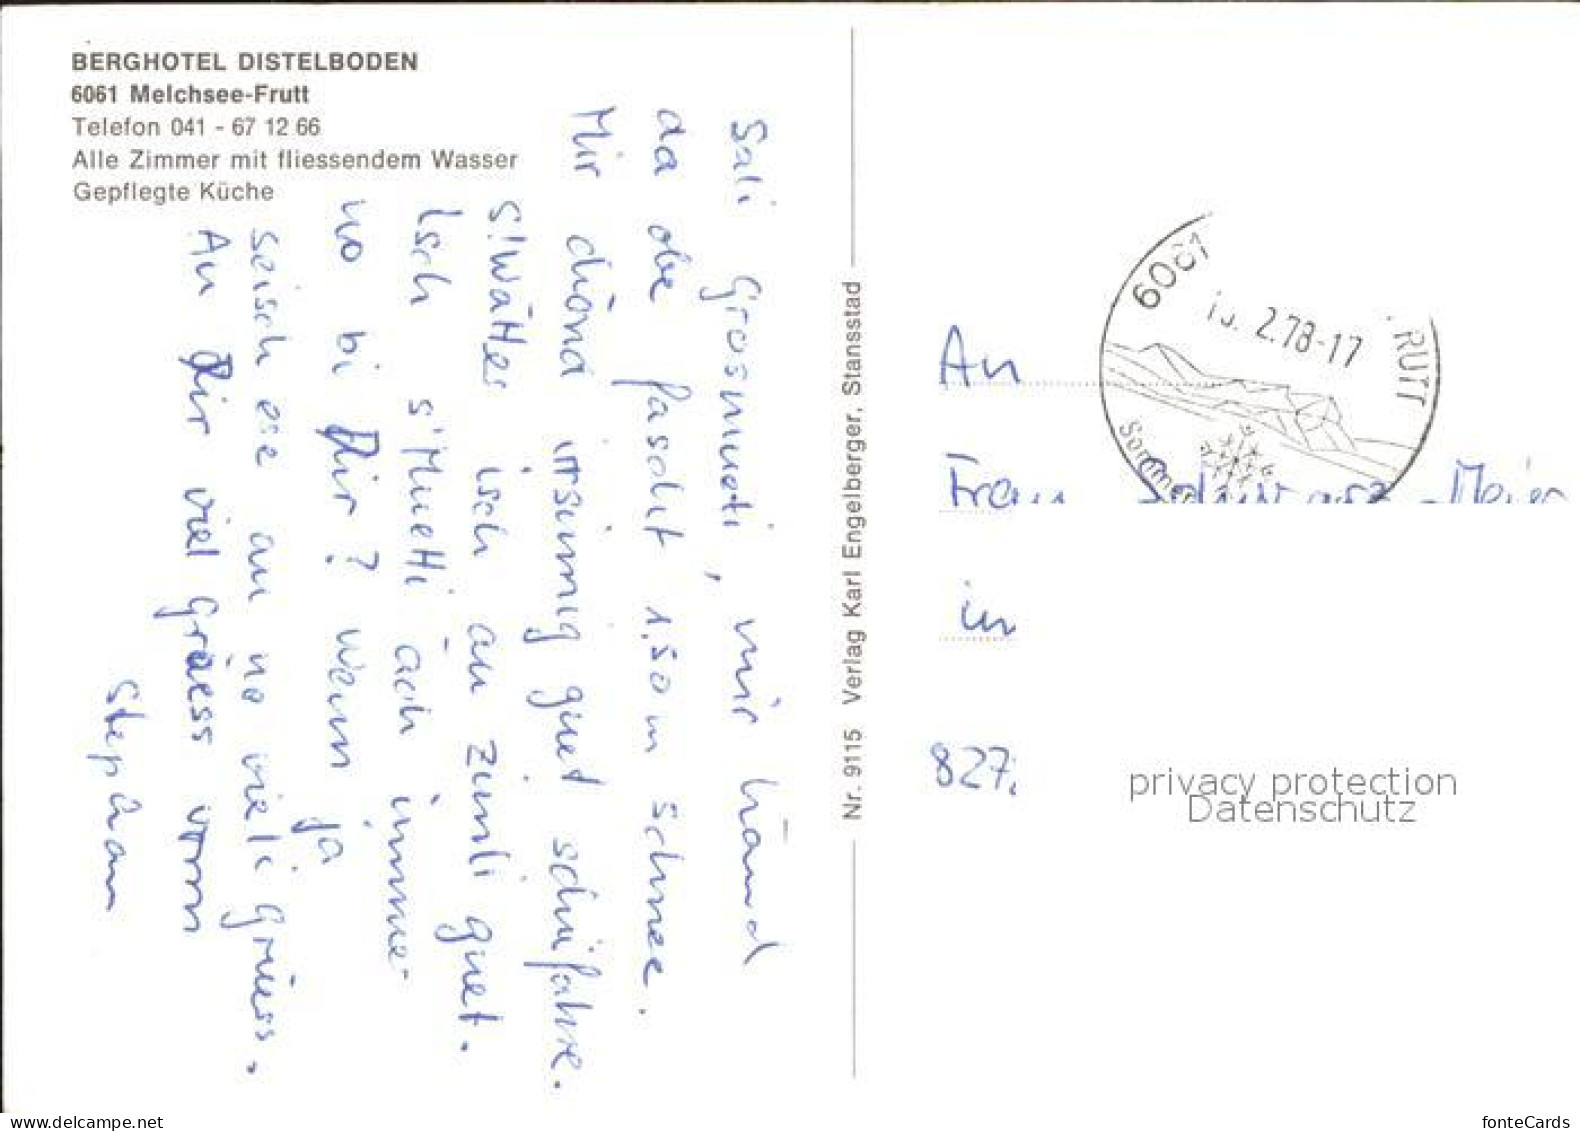 BERGHOTEL DISTELBODEN
6061 Melchsee-Frutt
Telefon 041 - 67 12 66
Alle Zimmer mit fliessendem Wasser
Gepflegte Küche
Sali Grosmueti, mir händ
da obe fascht 1.50 m schnee.
Mir chönd irrsinnig guet schiifahre.
s'Wätter isch au zimli guet.
Isch s'Muetti äch imme-
no bi Dir? Wenn ja
seisch ere au no vieli grüess.
An Dir viel grüess vom
Stephan
Nr. 9115 Verlag Karl Engelberger, Stansstad
6061
2.78-17
RUTT
Sommer
An
Frau
in
827.
privacy protection
Datenschutz
www.delcampe.net
fonteCards